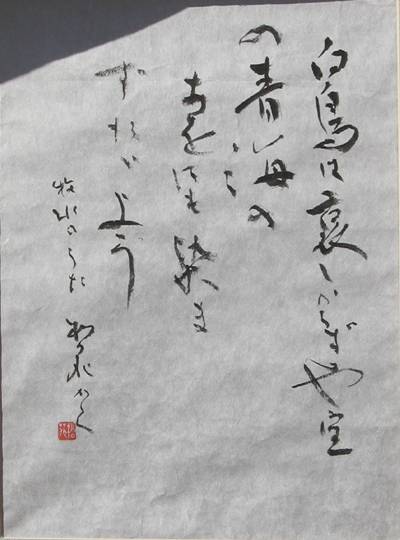 白鳥は哀しからずや空
の青海の
あをにも染ま
ずただよふ
牧水のうた かく